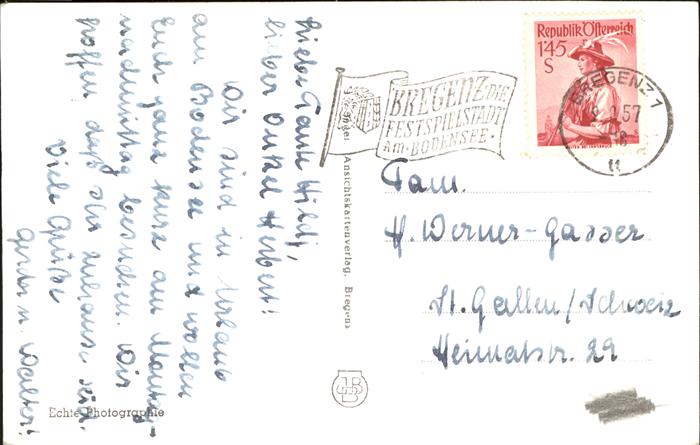 Liebe Tante Hildj,
lieber Onkel Herbert!
Wir sind in Urlaub
am Bodensee und wollen
Euch ganz kurz am Montag-
nachmittag besuchen. Wir
hoffen daß Ihr zuhause seid.
Viele Grüße
Gerda u. Walter!
Echte Photographie
Ansichtskartenverlag, Bregenz
BREGENZ DIE
FESTSPIELSTADT
AM·BODENSEE·
Republik Österreich
1'45
S
BREGENZ 1
57
tt
Fam.
H. Werner-Gasser
St. Gallen/Schweiz
Heimatstr. 29